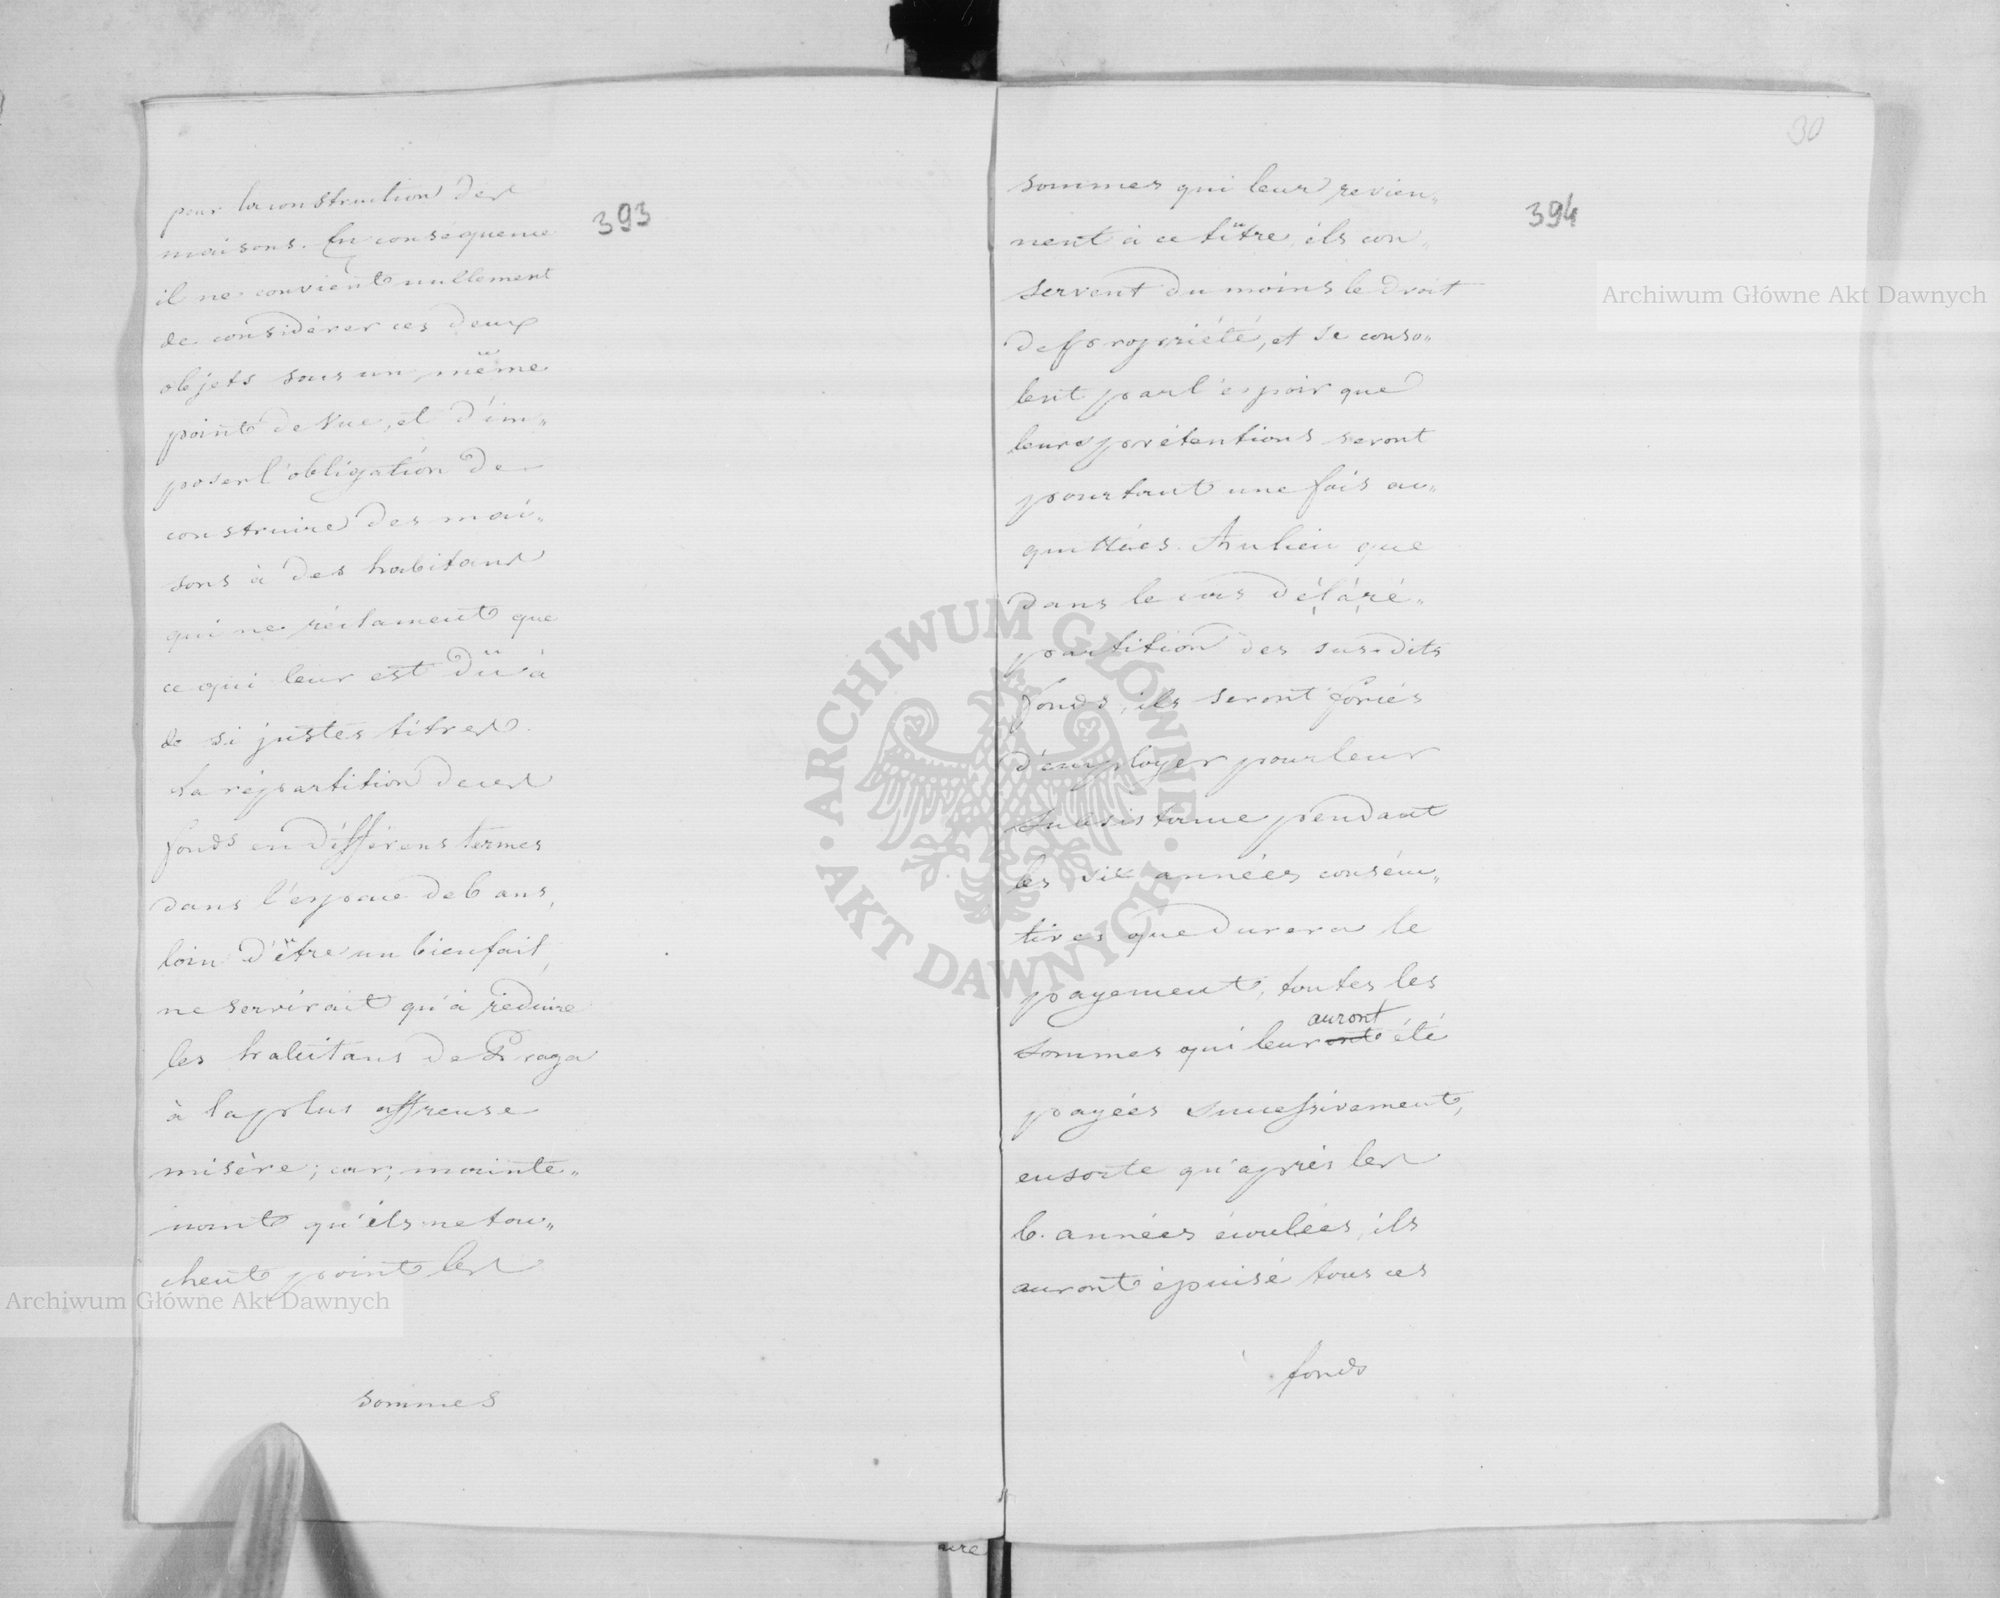 393
pour la construction des
maisons. En conséquence
il ne convient nullement
de considérer ces deux
objets sous un même
point de vue, et d'im„
poser l'obligation de
construire des mai„
sons à des habitans
qui ne réclament que
ce qui leur est dü à
de si justes titres.
La répartition de ces
fonds en différens termes
dans l'espace de 6 ans,
loin d'être un bienfait,
ne servirait qu'à réduire
les habitans de Praga
à la plus affreuse
misère; car, mainte„
nant qu'ils ne tou„
chent point les
sommes
30
394
sommes qui leur revien„
nent à ce titre, ils con„
servent du moins le droit
de propriété, et se conso„
lent par l'espoir que
leurs prétentions seront
pourtant une fois ac„
quittées. Au lieu que
dans le cas de la ré„
partition des susdits
fonds, ils seront forcés
d'employer pour leur
subsistance pendant
les six années consécu„
tives que durera le
payement, toutes les
auront
sommes qui leur ont été
payées successivement,
ensorte qu'après les
6. années écoulées, ils
auront épuisé tous ces
fonds
ure
Archiwum Główne Akt Dawnych
Archiwum Główne Akt Dawnych
ARCHIWUM GŁÓWNE · AKT DAWNYCH ·